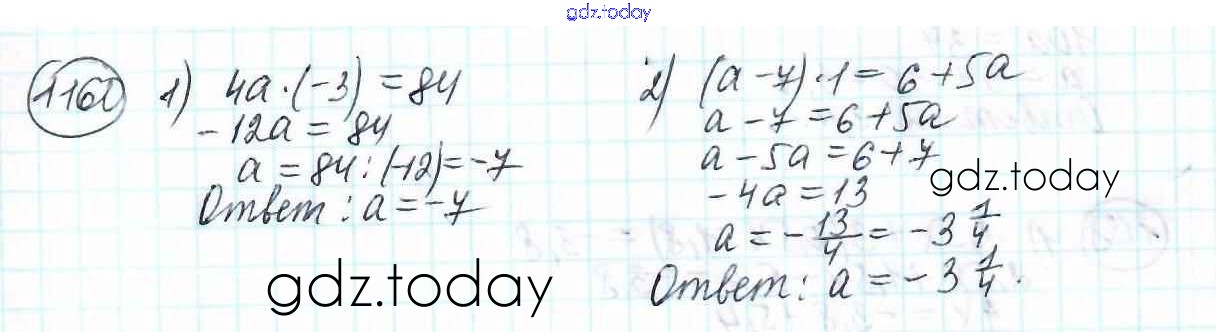 gdz.today
1160 1) 4a·(-3) = 84
-12a = 84
a = 84 : (-12) = -7
Ответ: a = -7
gdz.today
2) (a - 7)·1 = 6 + 5a
a - 7 = 6 + 5a
a - 5a = 6 + 7
gdz.today
-4a = 13
a = -13/4 = -3 1/4
Ответ: a = -3 1/4.